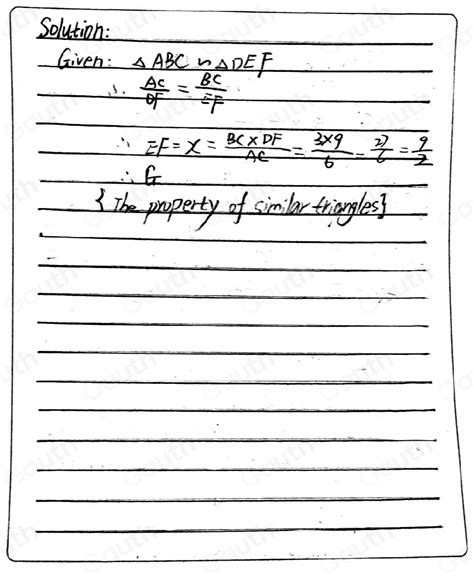 Solution:
Given: △ABC ∽ △DEF
∴ AC/DF = BC/EF
∴ EF = x = BC×DF/AC = 3×9/6 = 27/6 = 9/2
∴ G
{The property of similar triangles}